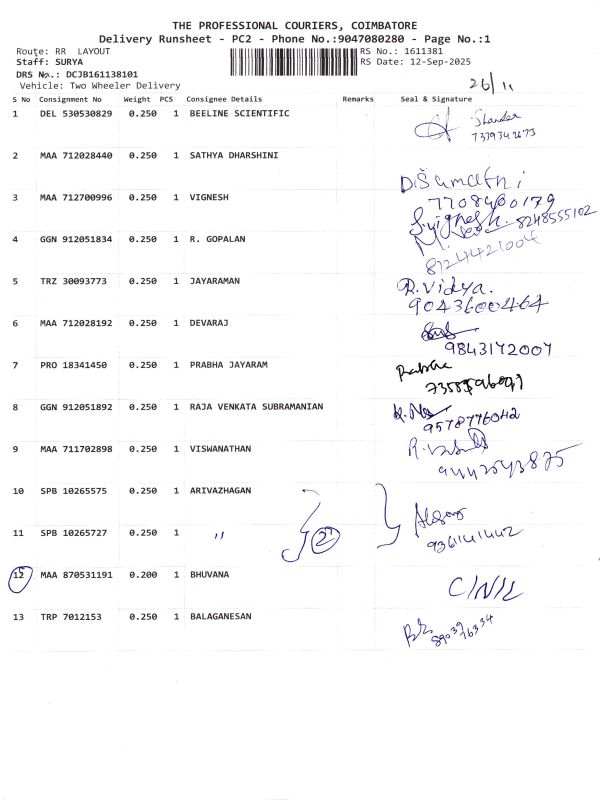 THE PROFESSIONAL COURIERS, COIMBATORE
Delivery Runsheet - PC2 - Phone No.:9047080280 - Page No.:1
Route: RR LAYOUT
RS No.: 1611381
Staff: SURYA
RS Date: 12-Sep-2025
DRS No.: DCJB161138101
26/11
Vehicle: Two Wheeler Delivery
S No Consignment No Weight PCS Consignee Details Remarks Seal & Signature
1 DEL 530530829 0.250 1 BEELINE SCIENTIFIC
2 MAA 712028440 0.250 1 SATHYA DHARSHINI
3 MAA 712700996 0.250 1 VIGNESH
7708400179
8248555102
4 GGN 912051834 0.250 1 R. GOPALAN
8724421004
5 TRZ 30093773 0.250 1 JAYARAMAN R.Vidya.
9043600464
6 MAA 712028192 0.250 1 DEVARAJ
9843172007
7 PRO 18341450 0.250 1 PRABHA JAYARAM Prabha
8 GGN 912051892 0.250 1 RAJA VENKATA SUBRAMANIAN
9578776042
9 MAA 711702898 0.250 1 VISWANATHAN
9442543875
10 SPB 10265575 0.250 1 ARIVAZHAGAN
11 SPB 10265727 0.250 1 " 2
9361141442
12 MAA 870531191 0.200 1 BHUVANA
13 TRP 7012153 0.250 1 BALAGANESAN
8903976334